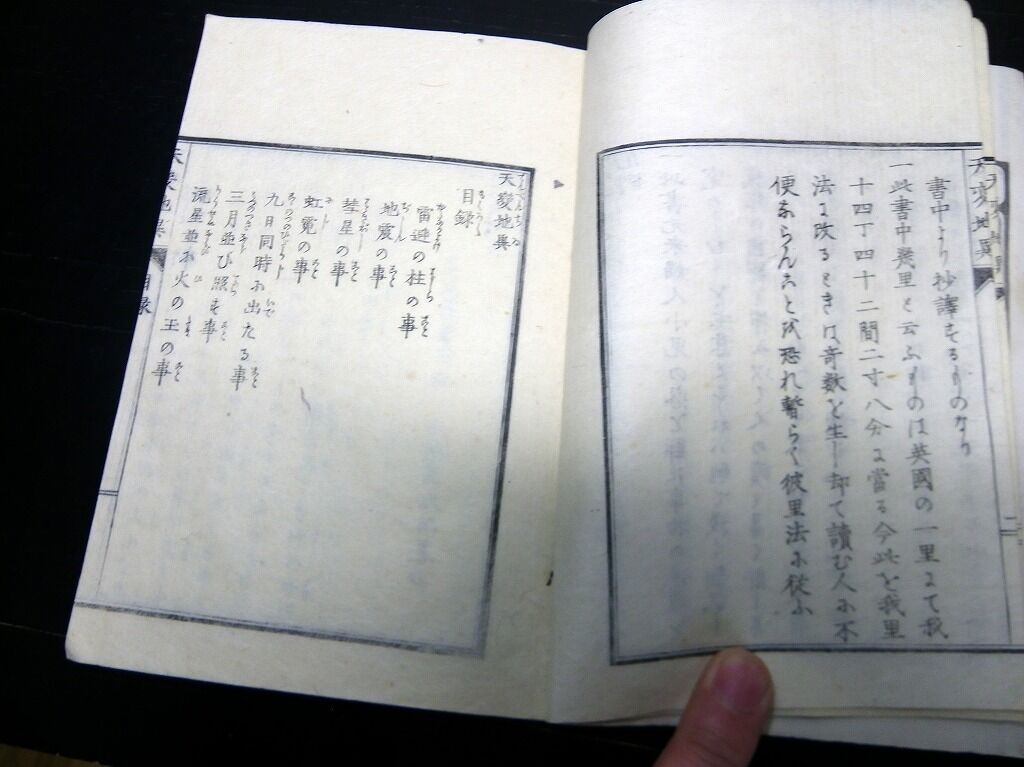 天変地異
書中より抄譯せるものなり
一此書中幾里と云ふものは英國の一里にて我
十四丁四十二間二寸八分に當る今此を我里
法に改るときは竒數を生し却て讀む人に不
便ならんことを恐れ暫らく彼里法に從ふ
二
天變地異
目録
雷避の柱の事
地震の事
彗星の事
虹霓の事
九日同時に出たる事
三月並び照す事
流星並に火の玉の事
目録